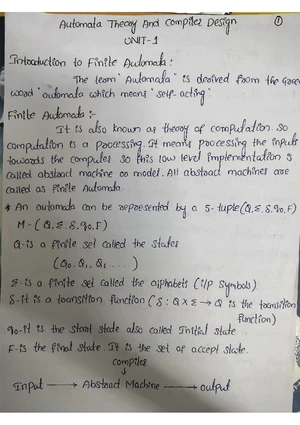 Automata Theory And Compiler Design ①
UNIT-1
Introduction to Finite Automada :
The team "Automala" is desived from the Gree
word "automata which means "self-acting"
Finite Automada :-
It is also known as theory of compulation. so
compulation is a processing. It means processing the inputs
towards the computer. so this low level implementation is
called abstract machine or model. All abstract machines are
called as finite Automada.
* An automata can be represented by a 5-tuple(Q,Σ,δ,q0,F)
M-(Q,Σ,δ,q0,F)
Q-is a finite set called the states
(Q0,Q1,Q2....)
Σ-is a finite set called the alphabets (i/p symbols)
δ-it is a transition function (δ:QXΣ→Q is the transition
function)
q0-it is the start state also called Initial state.
F-is the final state. It is the set of accept state.
compiler
Input → Abstract Machine → output